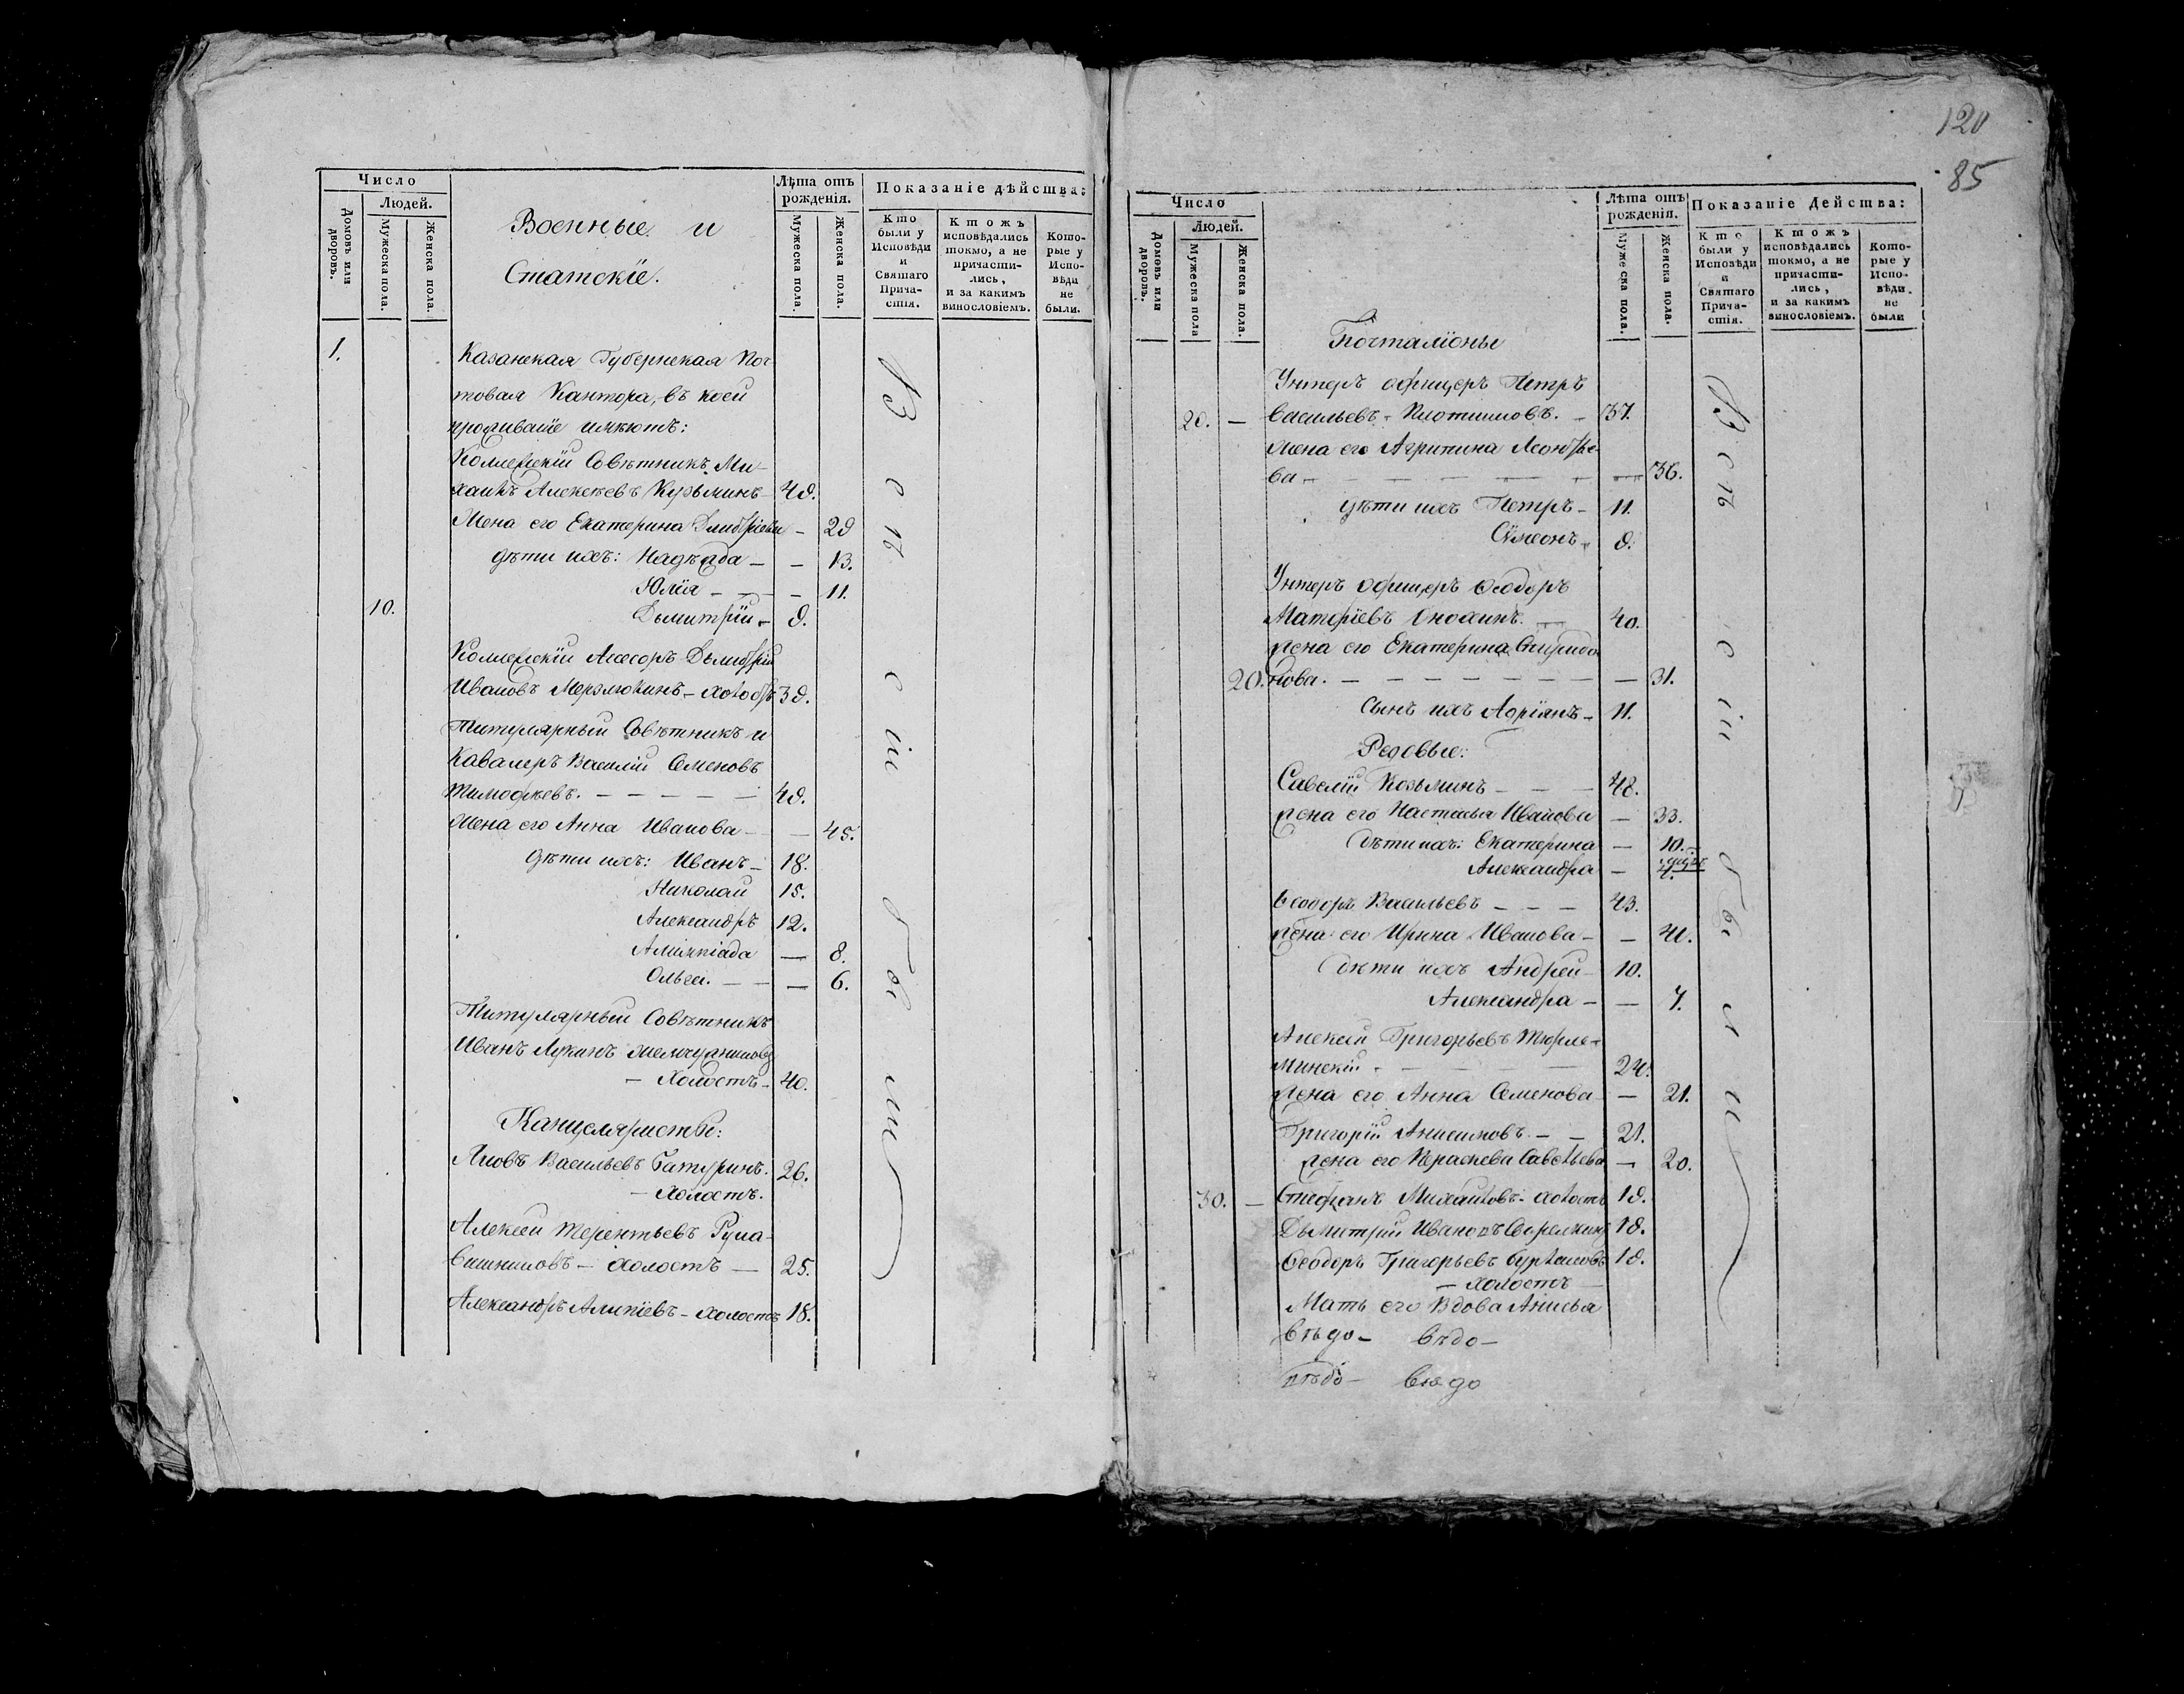 Число
Людей.
Домовъ или дворовъ.
Мужеска пола.
Женска пола.
Военные и
Статскіе.
Лѣта отъ
рожденія.
Мужеска пола.
Женска пола.
Показаніе дѣйства:
Кто
были у
Исповѣди
и
Святаго
Прича-
стія.
Ктожъ
исповѣдались
токмо, а не
причасти-
лись,
и за какимъ
винословіемъ.
Кото-
рые у
Испо-
вѣди
не
были.
1. Казанская Губернская Поч-
товая Кантора, въ коей
прозиваніе имѣютъ:
Коллежскій Совѣтникъ Ми-
хаилъ Алексѣевъ Кузьминъ 48.
Жена его Екатерина Дмитріева — 28
дѣти ихъ: Надѣжда — — 13.
Юлія — — 11.
10. Дьмитрій — 8.
Коллежскій Асесоръ Дьмитрій
Ивановъ Мерзлюкинъ — холостъ 38.
Титулярный Совѣтникъ и
Кавалеръ Василій Семеновъ
Тимофѣевъ. — 48.
Жена его Анна Иванова — — 45.
дѣти ихъ: Иванъ — 18.
Николай 15.
Александръ 12.
— 8.
Ольга. — — 6.
Титулярный Совѣтникъ
Иванъ Лукинъ
— Холостъ — 40.
Канцеляристы:
Васильевъ Батуринъ. 26.
— Холостъ.
Алексѣй Терентьевъ
— холостъ — 25.
Александръ Алипіевъ — холостъ 18.
120
85
Число
Людей.
Домовъ или дворовъ.
Мужеска пола
Женска пола.
Лѣта отъ
рожденія.
Мужеска пола.
Женска пола.
Показаніе Действа:
Кто
были у
Исповѣди
и
Святаго
Прича-
стія.
Ктожъ
исповѣдались
токмо, а не
причасти-
лись,
и за какимъ
винословіемъ.
Кото-
рые у
Испо-
вѣди
не
были
Почталіоны
Унтеръ офицеръ Петръ
20. — Васильевъ — Плотниковъ. — 37.
Жена его Агрипина Леонтье-
ва — — 36.
дѣти ихъ Петръ — 11.
Сѵмеонъ 8.
Унтеръ офицеръ Ѳеодоръ
40.
жена его Екатерина Спиридо-
20. нова. — — 31.
Сынъ ихъ Адріянъ — 11.
Редовые:
Савелій Козьминъ — 48.
жена его Настасья Иванова — 33.
дѣти ихъ: Екатерина — 10.
Александра — 4.
Ѳеодоръ Васильевъ — 43.
жена его Ирина Иванова — — 41.
дѣти ихъ Андрей 10.
Александра — — 7.
Алексѣй Григорьевъ Тюрле-
минскій — 24.
жена его Анна Семенова — 21.
Григорій Анисимовъ — 21.
жена его Параскева Савельева — 20.
30. — Стефанъ Михаиловъ — холостъ 18.
Дьмитрій Ивановъ 18.
Ѳеодоръ Григорьевъ 18.
— холостъ —
Мать его Вдова Анисья
Вѣдо — вѣдо —
вѣдо — Вѣдо